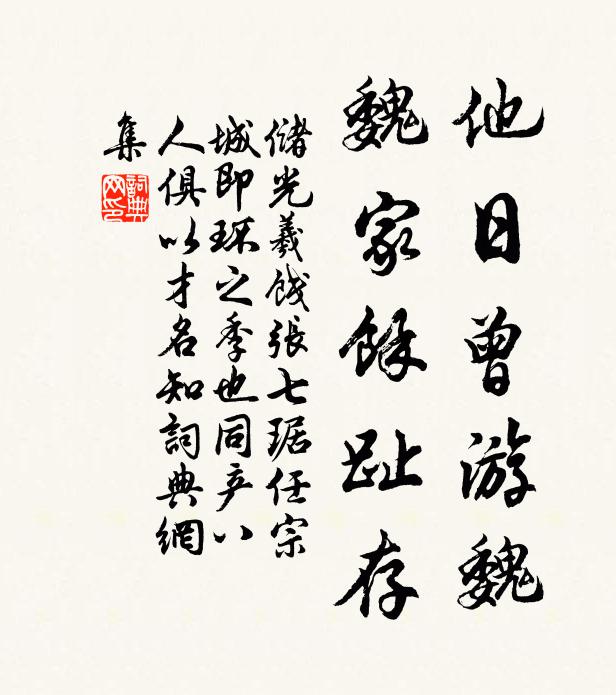 他日曾游魏
魏家餘趾存
儲光羲餞張七琚任宗
城即环之季也同产八
人俱以才名知詞典網
集
詞典
网印